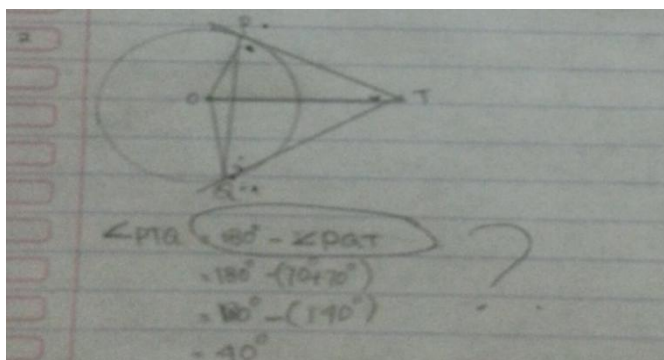 2
P
O
T
Q
∠PTQ = 180° - ∠PQT
= 180° - (70° + 70°)
= 180° - (140°)
= 40°
?